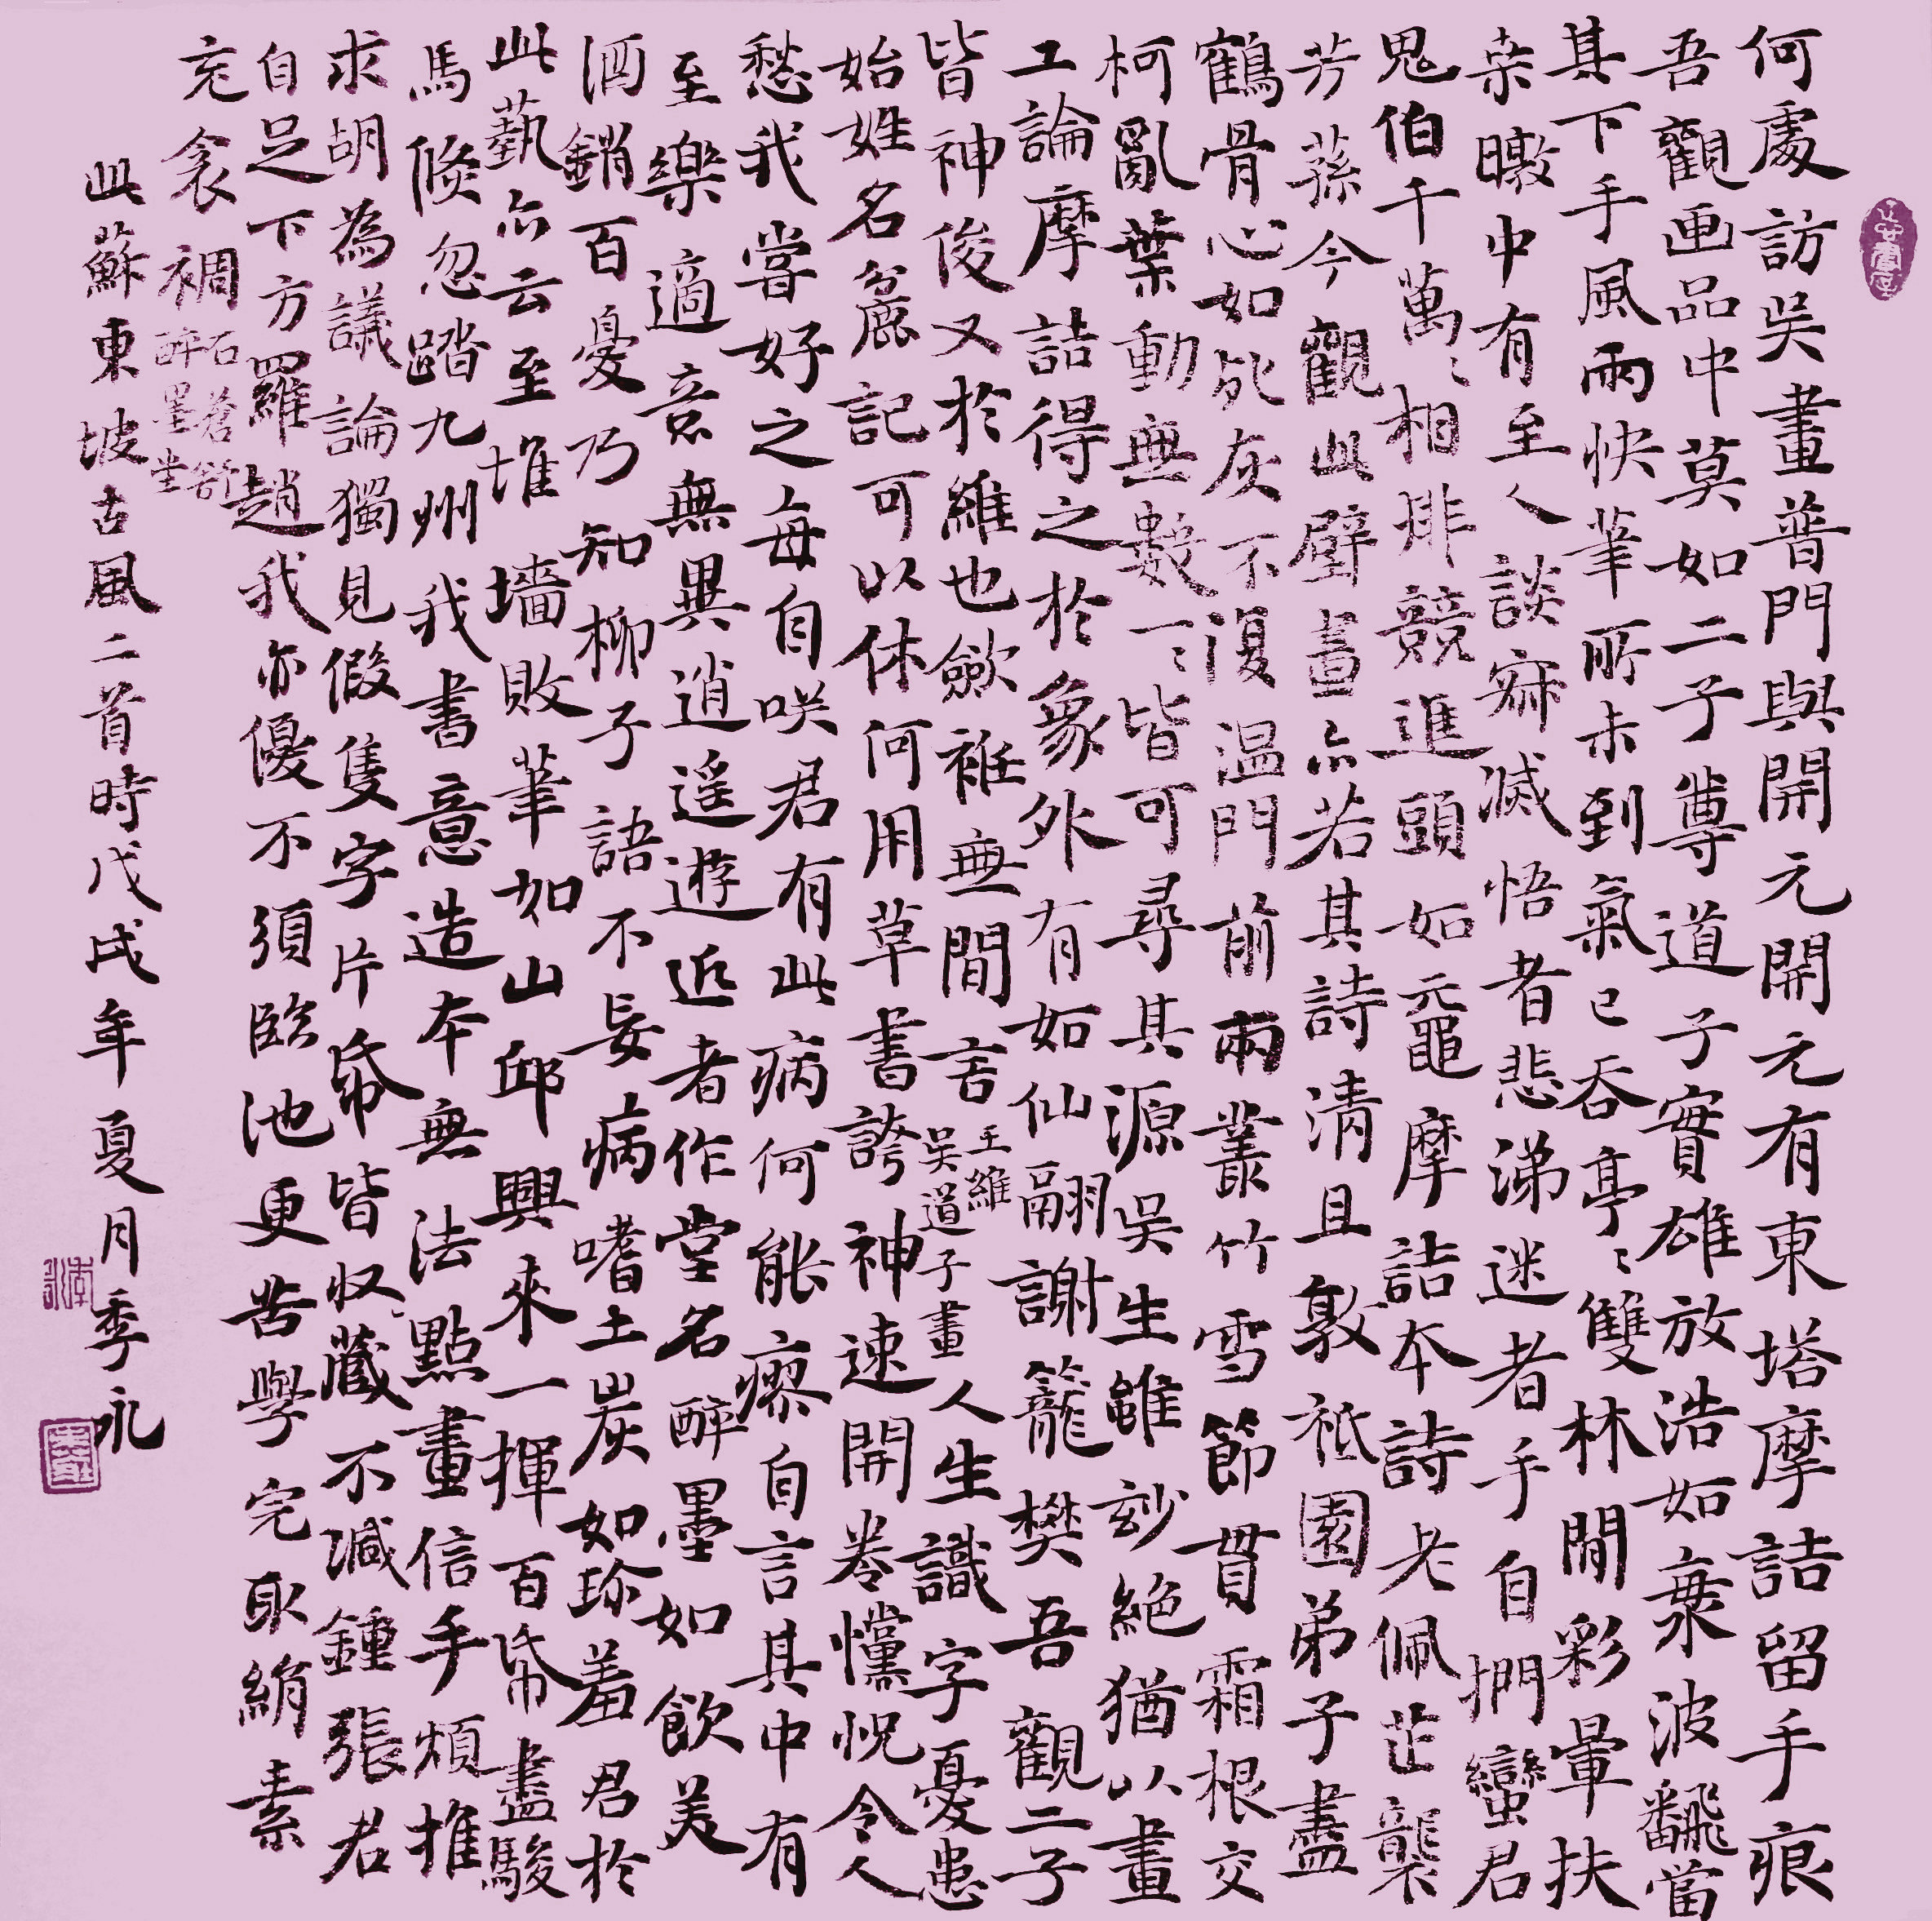 何處訪吳畫普門與開元開元有東塔摩詰留手痕
吾觀画品中莫如二子尊道子實雄放浩如海波飜當
其下手風雨快筆所未到氣已吞亭〻雙林閒彩暈扶
桒暾中有至人談寂滅悟者悲涕迷者手自捫蠻君
鬼伯千萬〻相排競進頭如黿摩詰本詩老佩芷襲
芳蓀今觀此壁畫亦若其詩清且敦祇園弟子盡
鶴骨心如死灰不復温門前兩叢竹雪節貫霜根交
柯亂葉動無數一〻皆可尋其源吳生雖玅絕猶以畫
工論摩詰得之於象外有如仙翮謝籠樊吾觀二子
皆神俊又於維也斂衽無間言 王維吳道子畫 人生識字憂患
始姓名麄記可以休何用草書誇神速開卷戃怳令人
愁我嘗好之每自咲君有此病何能瘳自言其中有
至樂適意無異逍遙遊近者作堂名醉墨如飲美
酒銷百憂乃知柳子語不妄病嗜土炭如珍羞君於
此藝亦云至堆墻敗筆如山邱興來一揮百帋盡駿
馬倏忽踏九州我書意造本無法點畫信手煩推
求胡為議論獨見假隻字片帋皆収藏不減鍾張君
自足下方羅趙我亦優不須臨池更苦學完取絹素
充衾裯 石蒼舒醉墨堂
此蘇東坡古風二首時戊戌年夏月季永